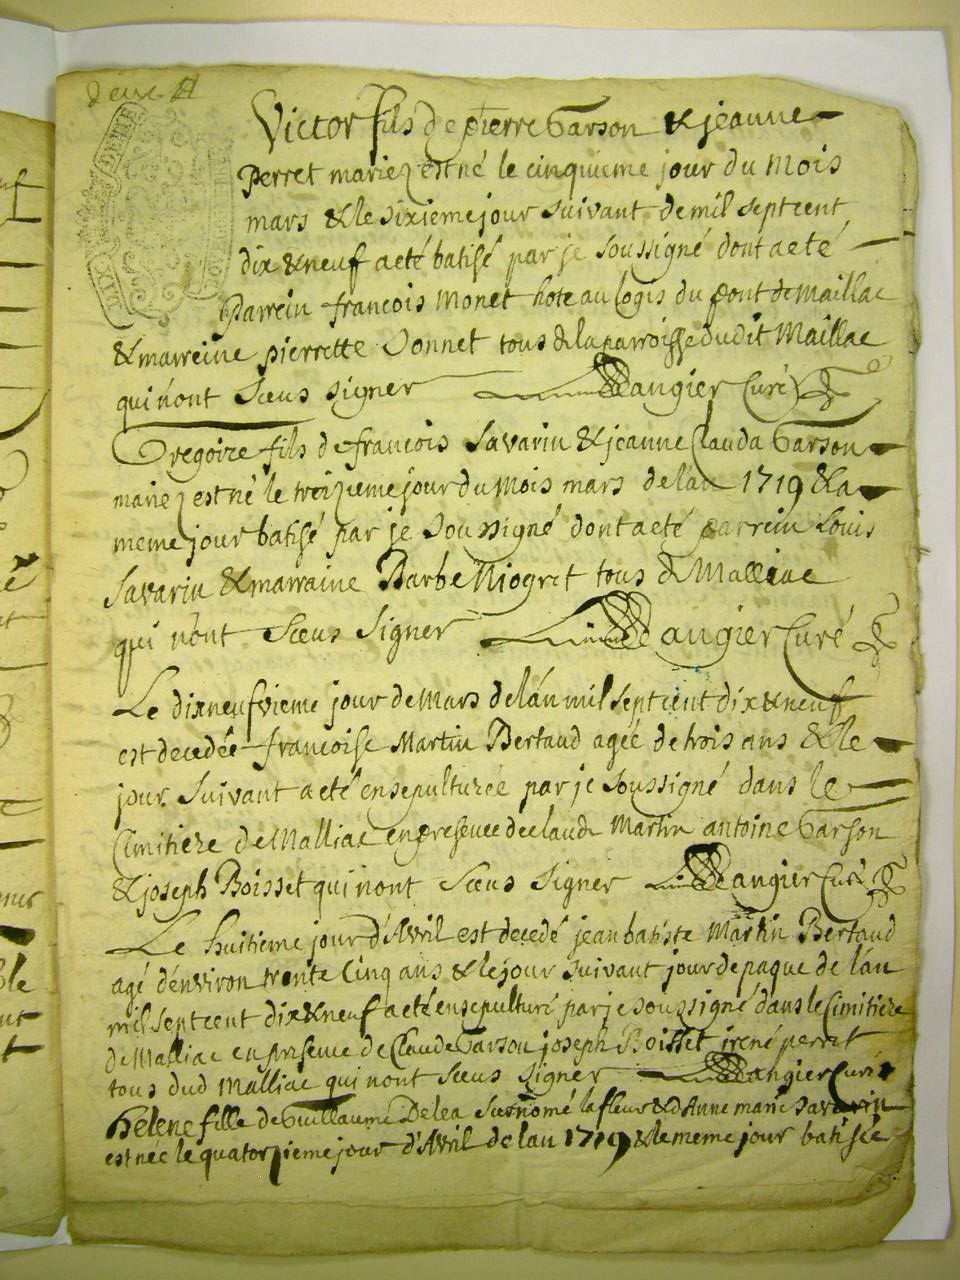 Victor fils de pierre Garson & jeanne
perret mariez est né le cinquieme jour du Mois
mars & le sixieme jour suivant de mil septcent
dix & neuf a eté batisé par je soussigné dont a eté
parrein francois Monet hote au logis du pont de Maillac
& marreine pierrette Donnet tous de la parroisse dudit Maillac
qui n'ont sceus signer Dangier Curé
Gregoire fils de francois Savarin & jeanne Clauda Garson
mariez est né le treizieme jour du Mois mars de l'an 1719 & la
meme jour batisé par je soussigné dont a eté parrein Louis
Savarin & marraine Barbe Niogret tous de Malliac
qui n'ont sceus signer Dangier Curé
Le dixneufvieme jour de Mars de l'an mil septcent dix & neuf
est decedée francoise Martin Bertaud agée de trois ans & le
jour suivant a eté ensepulturée par je soussigné dans le
Cimitiere de Malliac en presence de claude Martin antoine Garson
& joseph Boisset qui n'ont sceus signer Dangier Curé
Le huitieme jour d'Avril est decedé jean batiste Martin Bertaud
agé d'environ trente Cinq ans & le jour suivant jour de paque de l'an
mil septcent dix & neuf a eté ensepulturé par je soussigné dans le Cimitiere
de Malliac en presence de Claude Garson joseph Boisset irené perret
tous dud Malliac qui n'ont sceus signer Dangier Curé
Helene fille de Guillaume Delea surnomé la fleur & d'Anne marie Savarin
est nee le quatorzieme jour d'Avril de l'an 1719 & le meme jour batisée